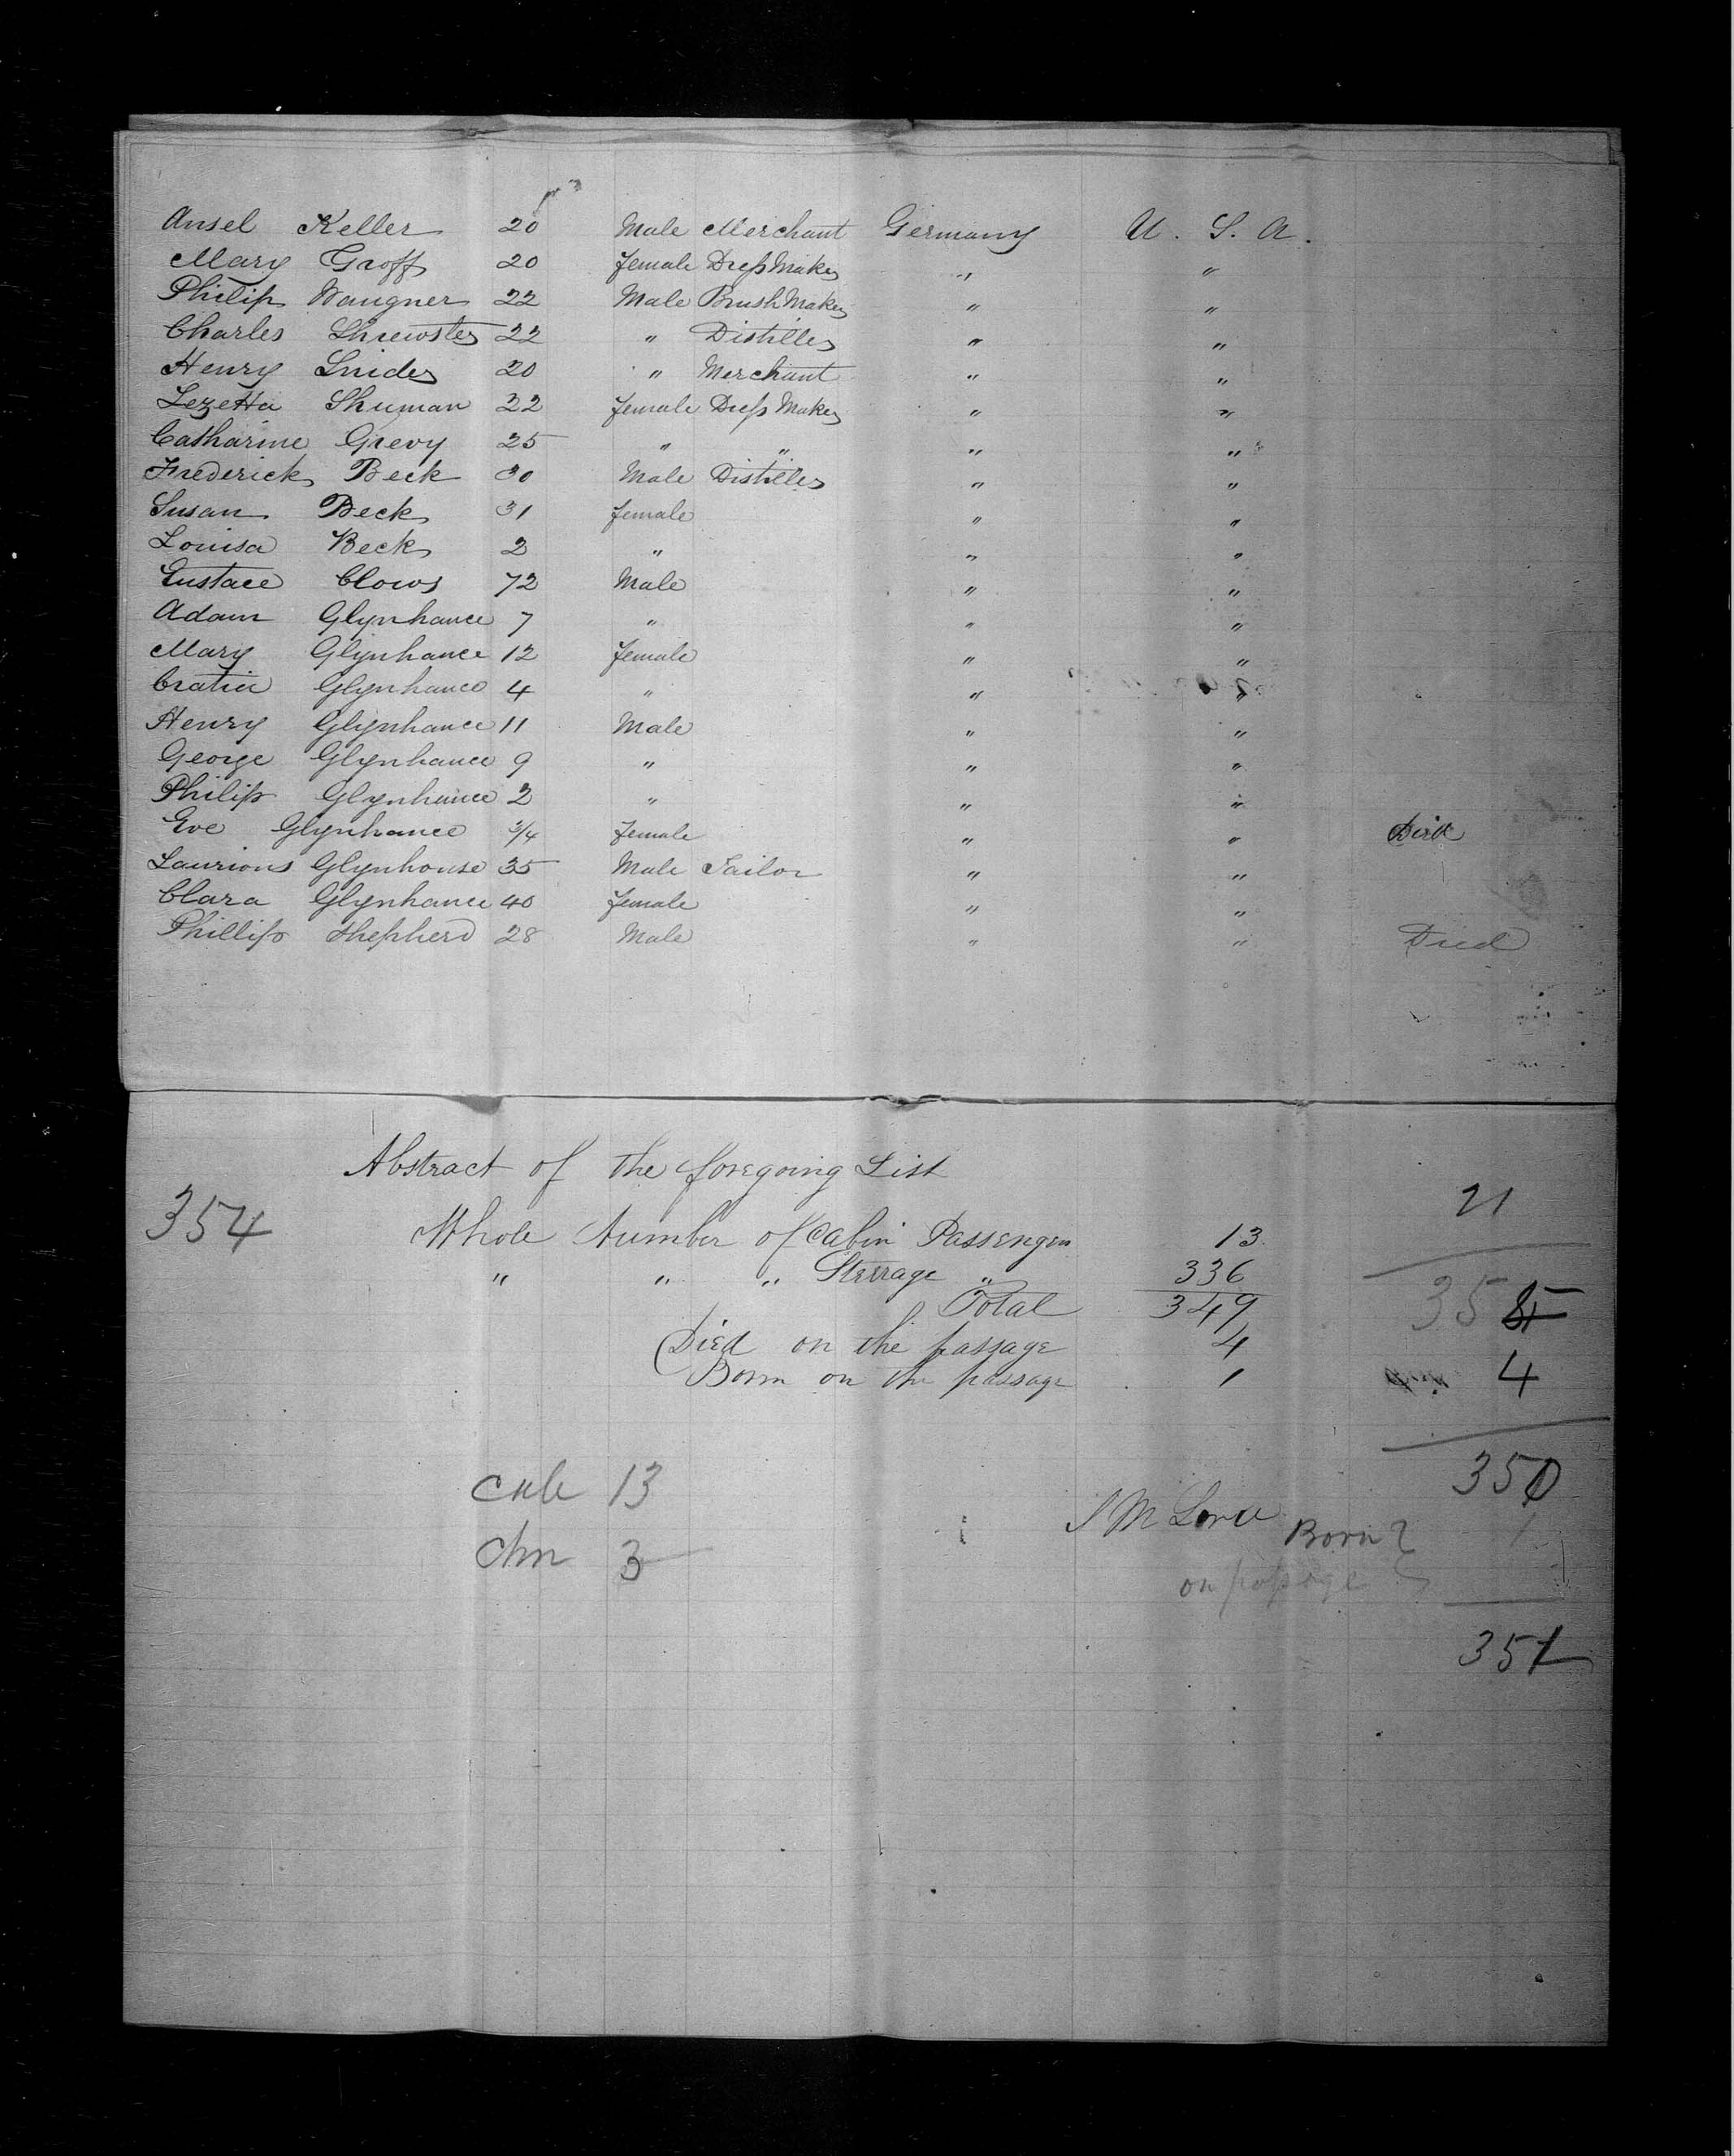 Ansel Keller 20 Male Merchant Germany U. S. A.
Mary Groff 20 female Dress Maker " "
Philip Waugner 22 Male Brush Maker " "
Charles Shrewster 22 " Distiller " "
Henry Snider 20 " Merchant " "
Lezetta Shuman 22 female Dress Maker " "
Catharine Grevy 25 " " " "
Frederick Beck 30 Male Distiller " "
Susan Beck 31 female " "
Louisa Beck 2 " " "
Eustace Clows 72 Male " "
Adam Glynhance 7 " " "
Mary Glynhance 12 female " "
Cratia Glynhance 4 " " "
Henry Glynhance 11 Male " "
George Glynhance 9 " " "
Philip Glynhance 2 " " "
Eve Glynhance 3/4 female " " Died
Laurions Glynhouse 35 Male Tailor " "
Clara Glynhance 40 female " "
Phillip Shepherd 28 Male " " Died
Abstract of the foregoing List
354
21
Whole Number of Cabin Passengers 13
" " " Steerage " 336
Total 349
35
Died on the passage 4
Born on the passage 1
4
350
13
3
S M Lord
Born
on passage
1
351